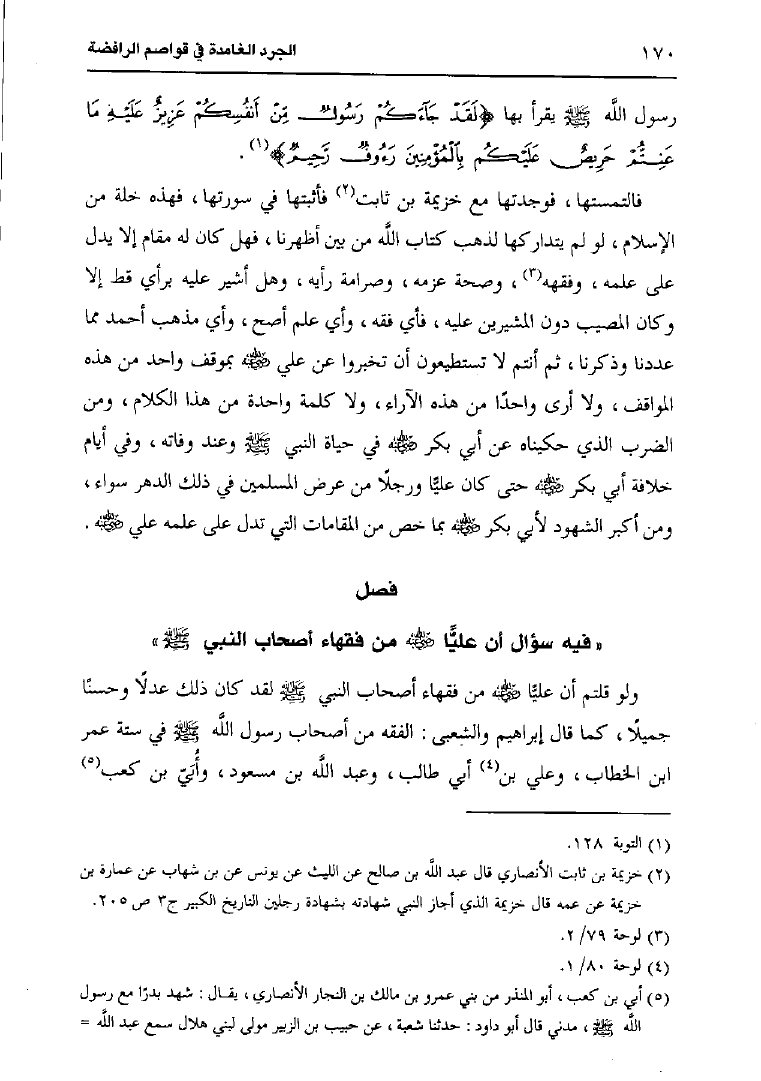 ١٧٠ الجرد الغامدة في قواصم الرافضة
رسول اللَّه ﷺ يقرأ بها ﴿لَقَدْ جَاءَكُمْ رَسُولٌ مِّنْ أَنفُسِكُمْ عَزِيزٌ عَلَيْهِ مَا
عَنِتُّمْ حَرِيصٌ عَلَيْكُم بِالْمُؤْمِنِينَ رَءُوفٌ رَّحِيمٌ﴾(١) .
فالتمستها ، فوجدتها مع خزيمة بن ثابت(٢) فأثبتها في سورتها ، فهذه خلة من
الإسلام ، لو لم يتداركها لذهب كتاب اللَّه من بين أظهرنا ، فهل كان له مقام إلا يدل
على علمه ، وفقهه(٣) ، وصحة عزمه ، وصرامة رأيه ، وهل أشير عليه برأي قط إلا
وكان المصيب دون المشيرين عليه ، فأي فقه ، وأي علم أصح ، وأي مذهب أحمد مما
عددنا وذكرنا ، ثم أنتم لا تستطيعون أن تخبروا عن علي رضي الله عنه بموقف واحد من هذه
المواقف ، ولا أرى واحدًا من هذه الآراء ، ولا كلمة واحدة من هذا الكلام ، ومن
الضرب الذي حكيناه عن أبي بكر رضي الله عنه في حياة النبي ﷺ وعند وفاته ، وفي أيام
خلافة أبي بكر رضي الله عنه حتى كان عليًّا ورجلًا من عرض المسلمين في ذلك الدهر سواء ،
ومن أكبر الشهود لأبي بكر رضي الله عنه بما خص من المقامات التي تدل على علمه علي رضي الله عنه .
فصل
« فيه سؤال أن عليًّا رضي الله عنه من فقهاء أصحاب النبي ﷺ »
ولو قلتم أن عليًّا رضي الله عنه من فقهاء أصحاب النبي ﷺ لقد كان ذلك عدلًا وحسنًا
جميلًا ، كما قال إبراهيم والشعبى : الفقه من أصحاب رسول اللَّه ﷺ في ستة عمر
ابن الخطاب ، وعلي بن(٤) أبي طالب ، وعبد اللَّه بن مسعود ، وأُبَيّ بن كعب(٥)
(١) التوبة ١٢٨.
(٢) خزيمة بن ثابت الأنصاري قال عبد اللَّه بن صالح عن الليث عن يونس عن بن شهاب عن عمارة بن
خزيمة عن عمه قال خزيمة الذي أجاز النبي شهادته بشهادة رجلين التاريخ الكبير ج٣ ص ٢٠٥.
(٣) لوحة ٧٩/ ٢.
(٤) لوحة ٨٠/ ١.
(٥) أبي بن كعب ، أبو المنذر من بني عمرو بن مالك بن النجار الأنصاري ، يقال : شهد بدرًا مع رسول
اللَّه ﷺ ، مدني قال أبو داود : حدثنا شعبة ، عن حبيب بن الزبير مولى لبني هلال سمع عبد اللَّه =